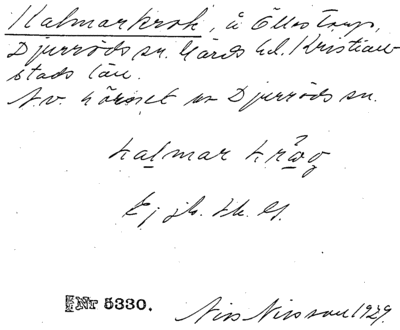 Kalmarkrok, å Ellestorp,
Djurröds sn. Gärds hd. Kristian-
stads län.
N.v. hörnet av Djurröds sn.
kalmar kråg
Ej jb. el. G.
Nr 5330.
Nils Nilsson 1929.